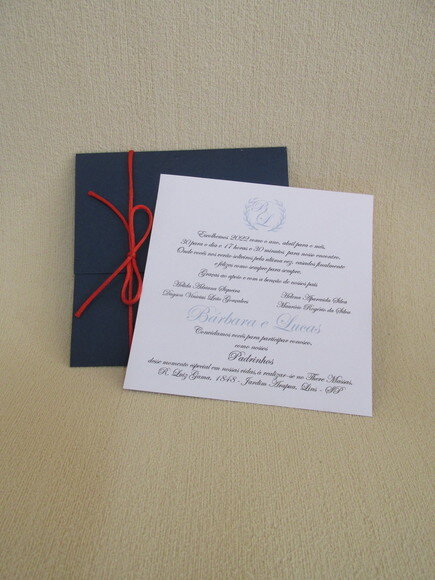 B L
Escolhemos 2022 como o ano, abril para o mês,
30 para o dia e 17 horas e 30 minutos, para nosso encontro.
Onde vocês nos verão solteiros pela última vez, casados finalmente
e felizes como sempre para sempre.
Graças ao apoio e com a benção de nossos pais
Helida Adriana Siqueira
Helena Aparecida Silva
Dagnon Vinicius Luis Gonçalves
Mauricio Rogério da Silva
Bárbara e Lucas
Convidamos vocês para participar conosco,
como nossos
Padrinhos
desse momento especial em nossas vidas, à realizar-se no There Massas.
R. Luiz Gama, 1848 - Jardim Arapua, Lins - SP